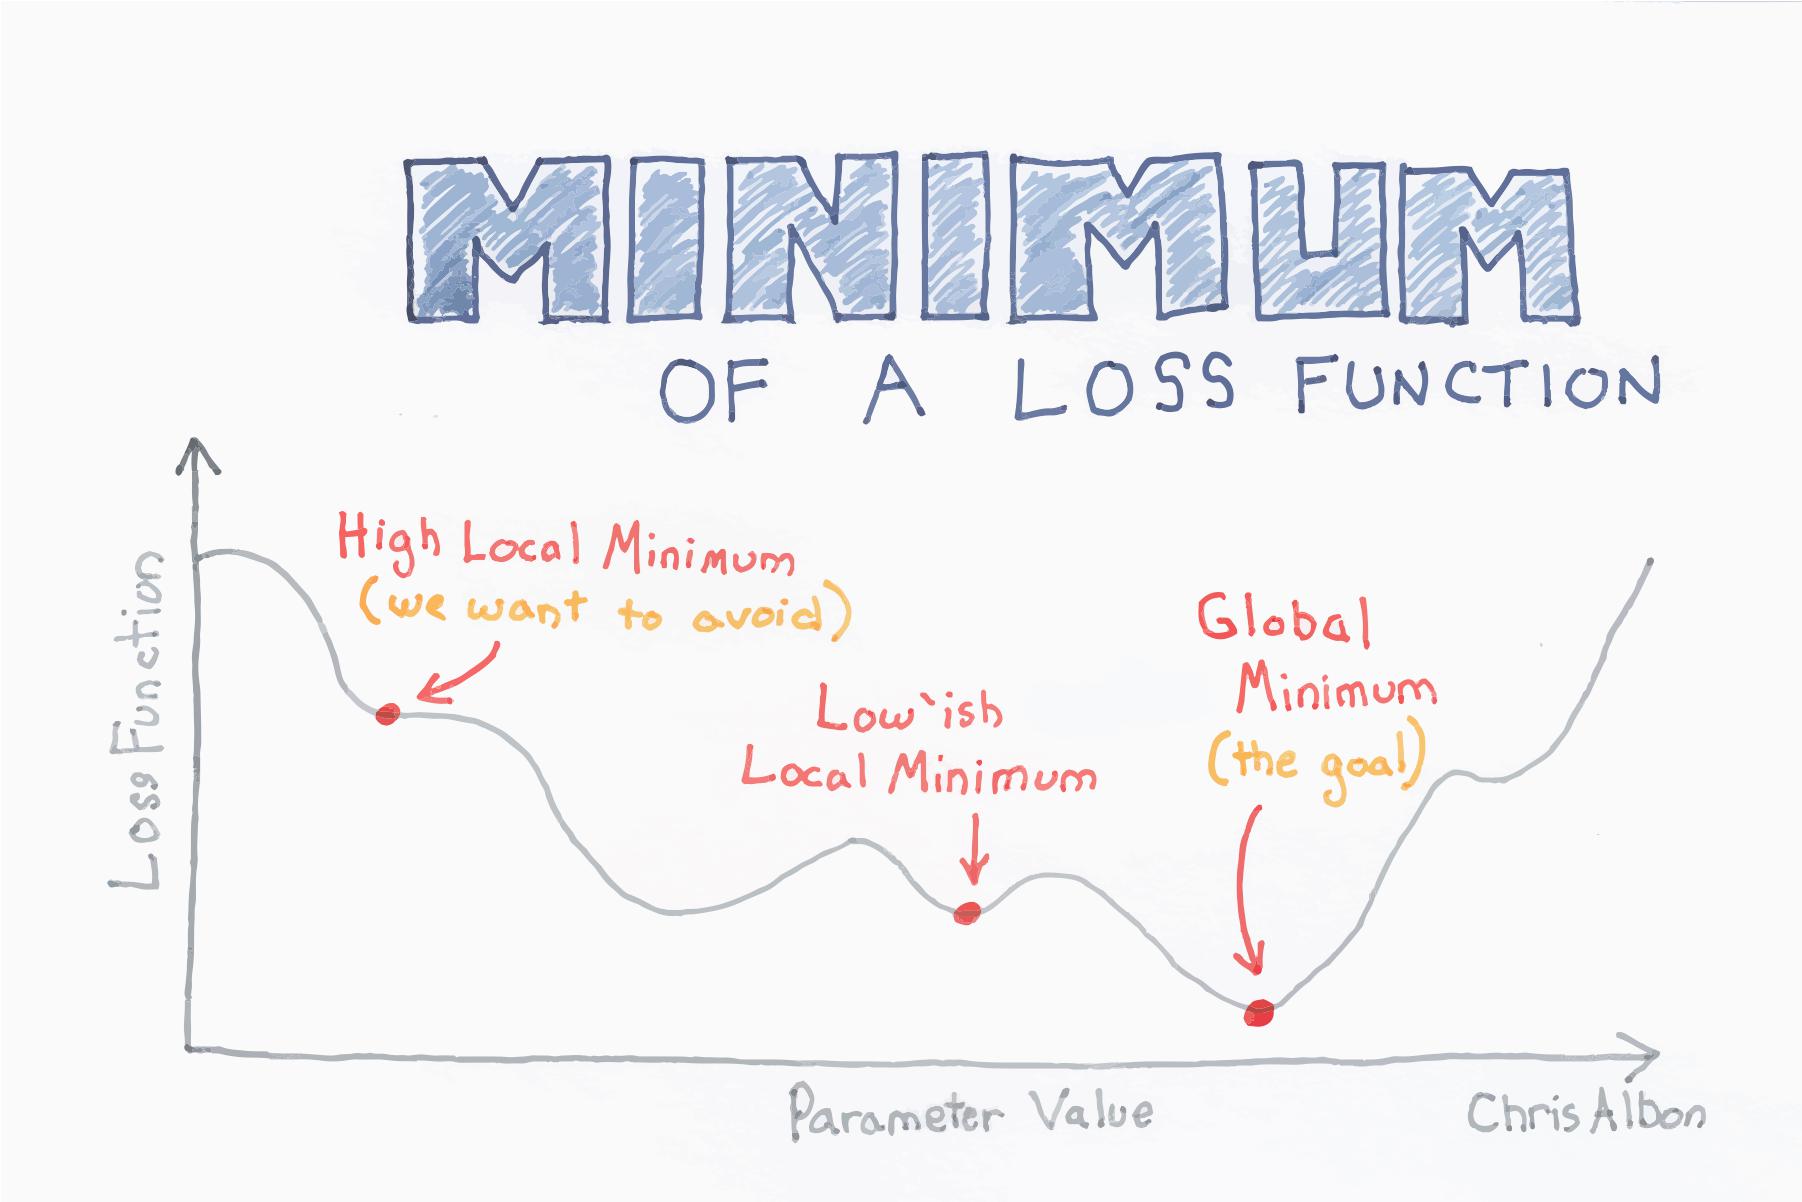 MINIMUM
OF A LOSS FUNCTION
High Local Minimum
(we want to avoid)
Low`ish
Local Minimum
Global
Minimum
(the goal)
Loss Function
Parameter Value
Chris Albon